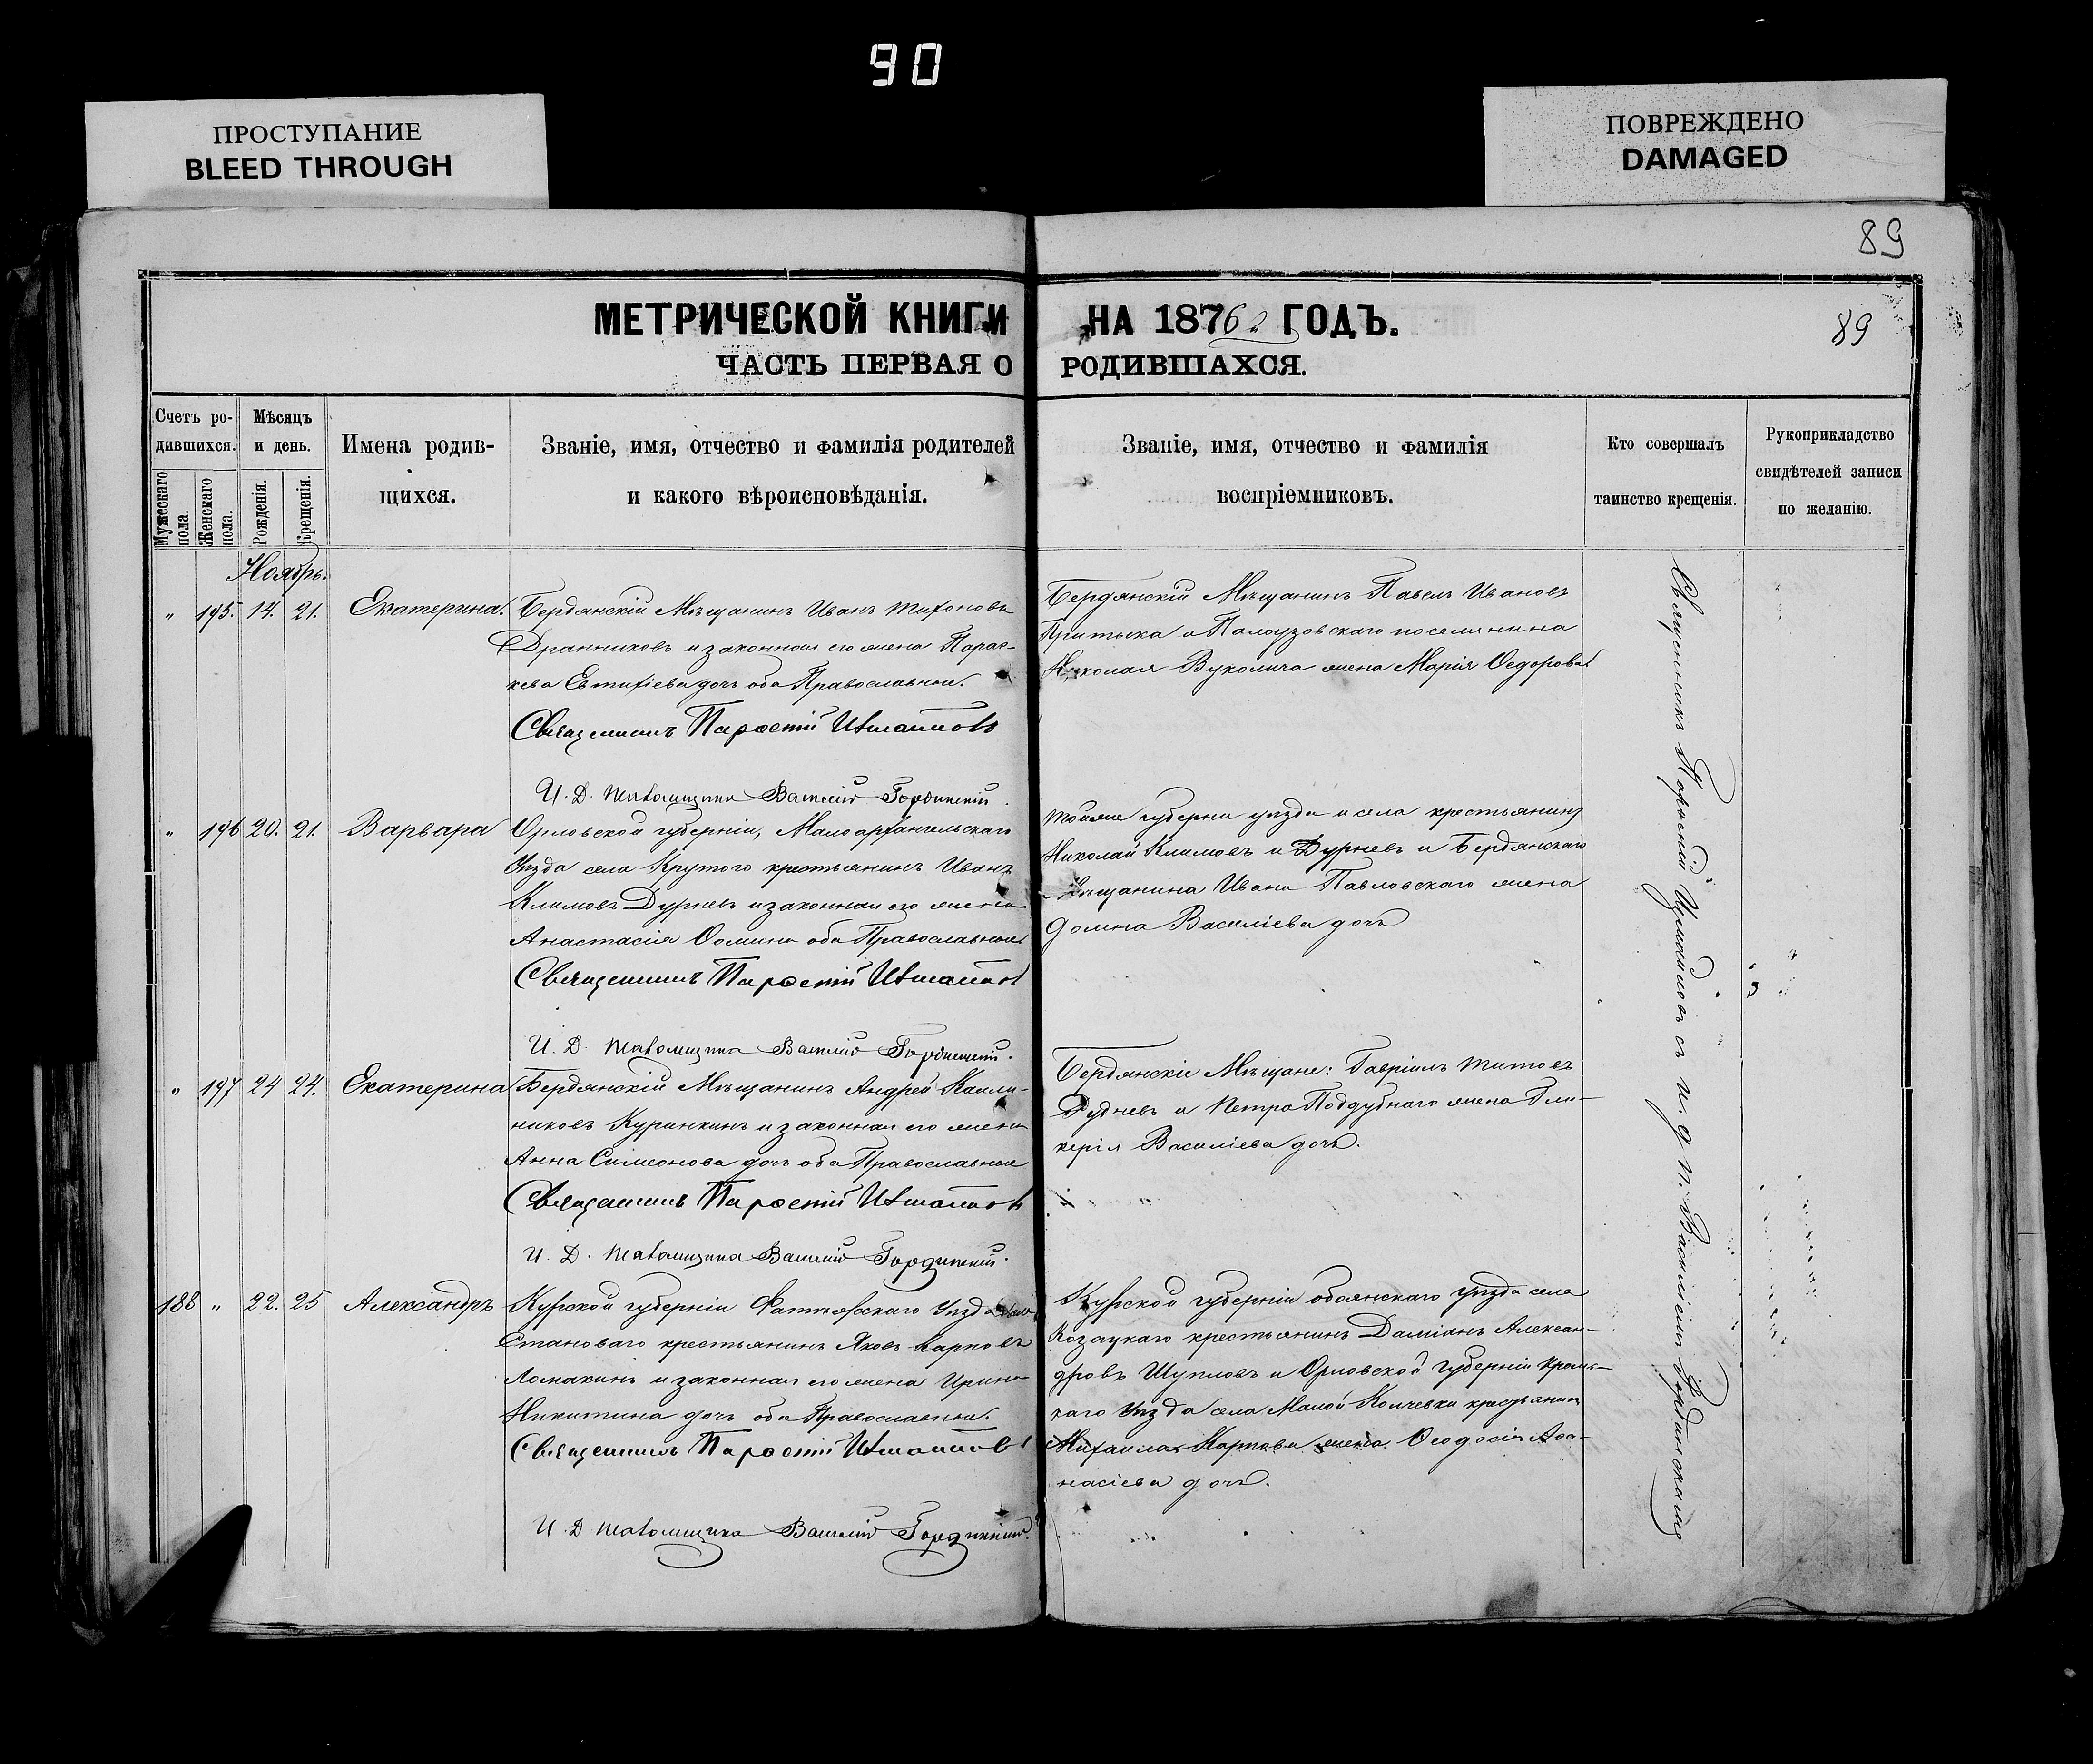 90
ПРОСТУПАНИЕ
BLEED THROUGH
ПОВРЕЖДЕНО
DAMAGED
89
МЕТРИЧЕСКОЙ КНИГИ НА 1876 ГОДЪ.
89
ЧАСТЬ ПЕРВАЯ О РОДИВШАХСЯ.
Счетъ ро-
дившихся.
Мужескаго пола.
Женскаго пола.
Мѣсяцъ
и день.
Рожденія.
Крещенія.
Имена родив-
щихся.
Званіе, имя, отчество и фамилія родителей
и какого вѣроисповѣданія.
Званіе, имя, отчество и фамилія
воспріемниковъ.
Кто совершалъ
таинство крещенія.
Рукоприкладство
свидѣтелей записи
по желанію.
Ноябрь.
" 195. 14. 21. Екатерина.
Бердянскій Мѣщанинъ Иванъ Тихоновъ
Дранниковъ и законная его жена Парас-
кева Евтихіева дочь оба Православные.
Священникъ
И. Д. Василій Гординскій.
Бердянскій Мѣщанинъ Павелъ Ивановъ
Притыка и поселянина
Николая Вуколича жена Марія Ѳедорова
" 196 20. 21. Варвара
Орловской губерніи, Малоархангельскаго
Уѣзда села Крутого крестьянинъ Иванъ
Климовъ Дурневъ и законная его жена
Анастасія Ѳомина оба Православные
Священникъ
И. Д. Василій Гординскій.
тойже губерніи уѣзда и села крестьянинъ
Николай Климовъ и Дурневъ и Бердянскаго
Мѣщанина Ивана Павловскаго жена
Домна Василіева дочь
" 197 24 24. Екатерина
Бердянскій Мѣщанинъ Андрей Калли-
никовъ Куринкинъ и законная его жена
Анна Симеонова дочь оба Православные
Священникъ
И. Д. Василій Гординскій.
Бердянскіе Мѣщане: Гавріилъ Титовъ
и Петра Поддубнаго жена Гли-
керія Василіева дочь.
188 " 22. 25 Александръ
Курской губерніи Уѣзда села
Становаго крестьянинъ Яковъ Карповъ
Ломакинъ и законная его жена Ирина
Никитина дочь оба Православные.
Священникъ
И. Д. Василій Гординскій.
Курской губерніи обоянскаго уѣзда села
Козацкаго крестьянинъ Даміанъ Алексан-
дровъ Шуплов и Орловской губерніи Кромс-
каго Уѣзда села Малой Колчевки крестьянина
Михаила Карпова жена Ѳеодосія Аѳа-
насіева дочь.
Священникъ съ и. д. п. Василіемъ Гординскимъ